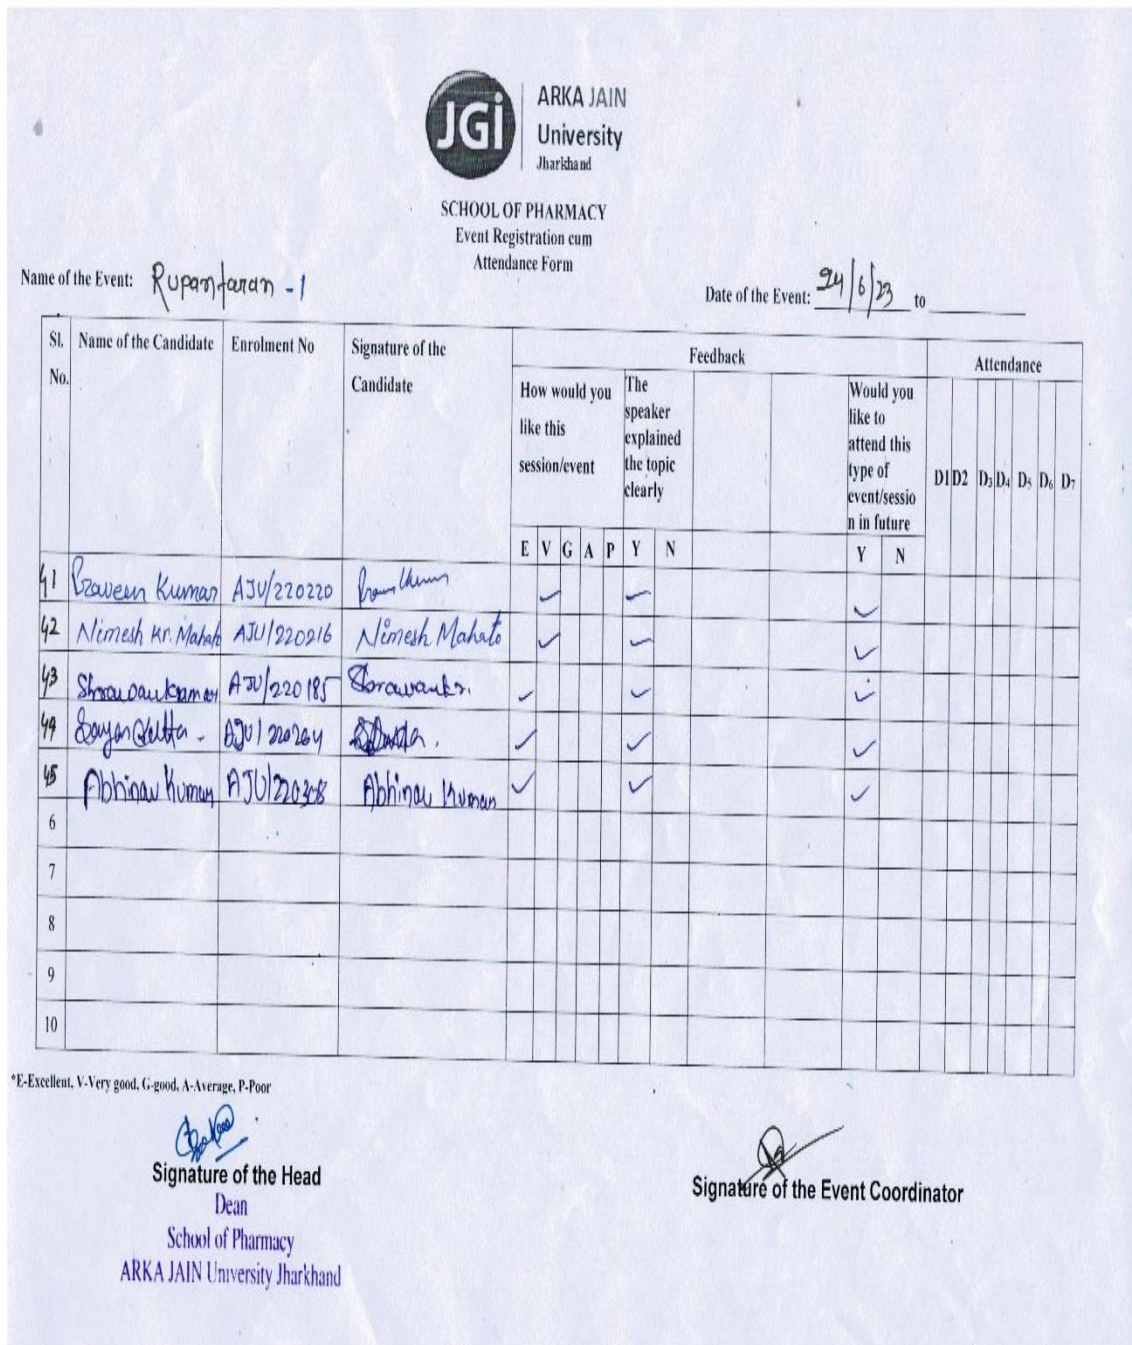 JGi
ARKA JAIN
University
Jharkhand
SCHOOL OF PHARMACY
Event Registration cum
Attendance Form
Name of the Event: Rupantaran -1
Date of the Event: 24/6/23 to
Sl. No. Name of the Candidate Enrolment No Signature of the Candidate Feedback Attendance
How would you like this session/event The speaker explained the topic clearly Would you like to attend this type of event/session in future D1 D2 D3 D4 D5 D6 D7
E V G A P Y N Y N
41 Praveen Kumar AJU/220220 ✓ ✓ ✓
42 Nimesh Kr. Mahato AJU/220216 Nimesh Mahato ✓ ✓ ✓
43 Shrawan Kumar AJU/220185 Shrawan kr. ✓ ✓ ✓
44 Sayan Dutta AJU/220264 ✓ ✓ ✓
45 Abhinav Kumar AJU/220308 Abhinav Kumar ✓ ✓ ✓
6
7
8
9
10
*E-Excellent, V-Very good, G-good, A-Average, P-Poor
Signature of the Head
Dean
School of Pharmacy
ARKA JAIN University Jharkhand
Signature of the Event Coordinator